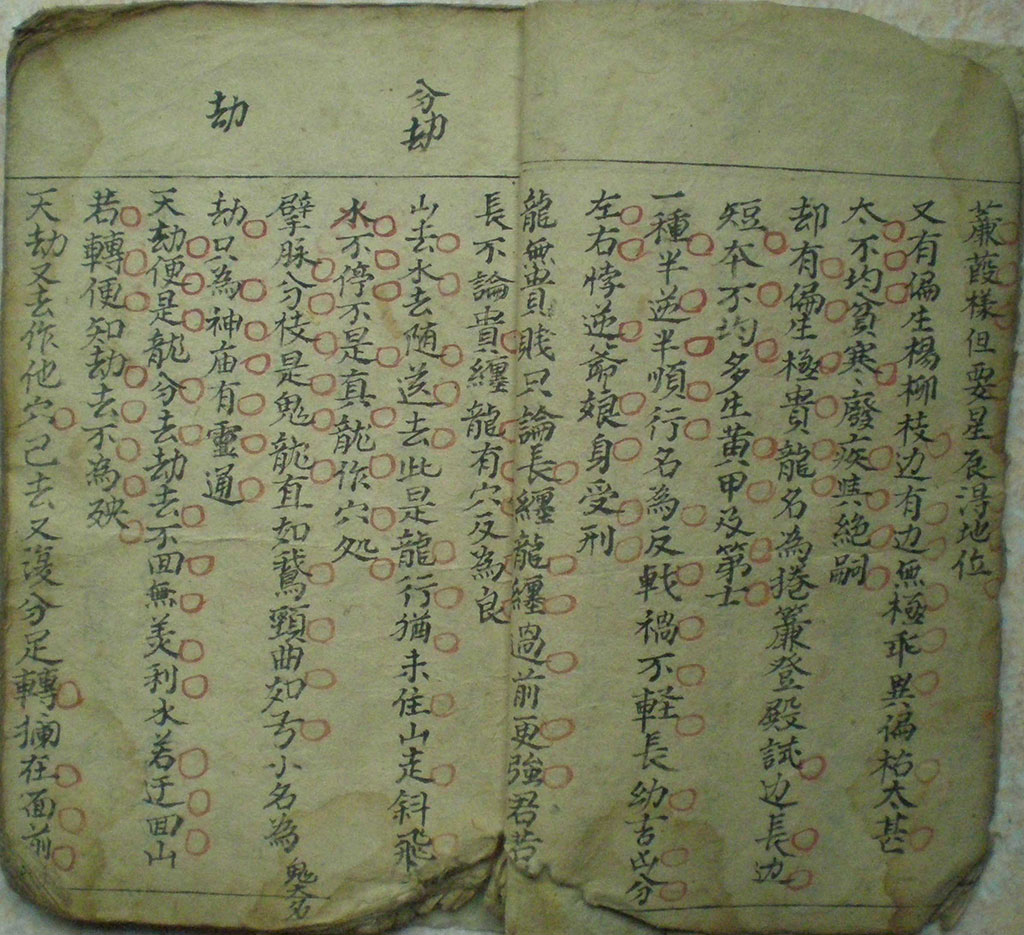 蒹葭樣但要星辰淂地位
又有偏生楊柳枝边有边無極乖異偏枯太甚
太不均貧寒廢疾㷀絶嗣
却有偏生極貴龍名為捲簾登殿試边長边
短本不均多生黄甲及第士
一種半逆半順行名為反戟禍不軽長幼吉凶分
左右悖逆爺娘身受刑
龍無貴賎只論長纒龍纒過前更強君若
長不論貴纒龍有穴反為良
山去水去随送去此是龍行猶未住山走斜飛
分劫
水不停不是真龍作穴処
擘脉分枝是鬼龍直如鵞頸曲如弓小名為鬼大名
劫
劫只為神庙有靈通
天劫便是龍分去劫去不回無美利水若迂回山
若轉便知劫去不為殃
天劫又去作他穴己去又復分足轉攔在面前